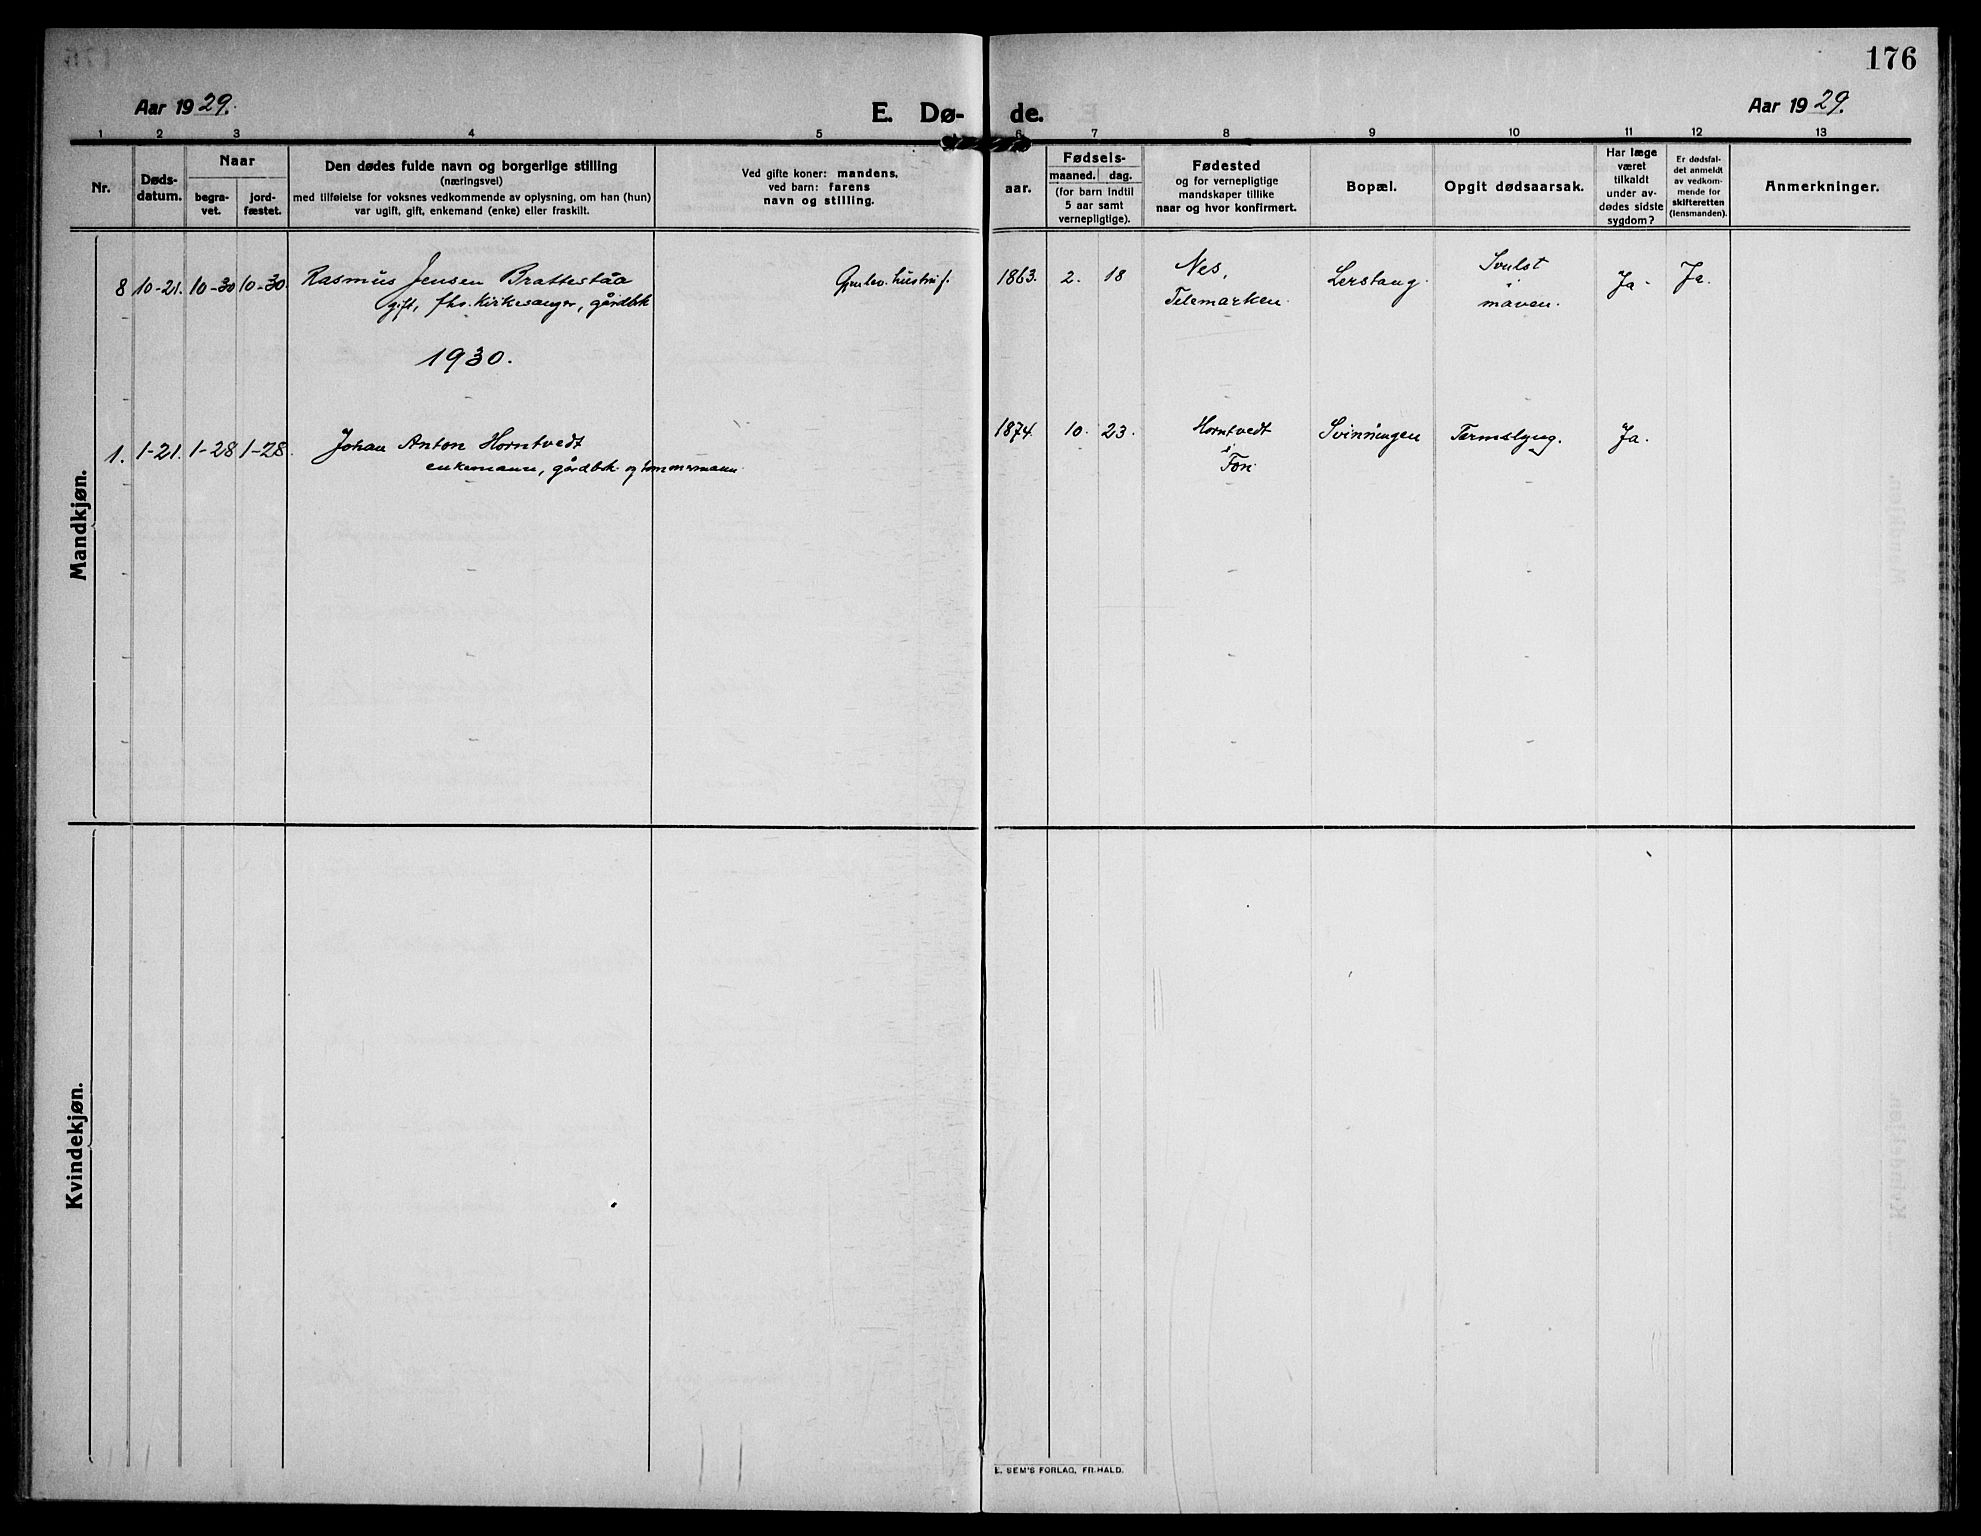 176
Aar 1929.
E. Dø-
de.
Aar 1929.
1 2 3 4 5 6 7 8 9 10 11 12 13
Nr.
Døds-
datum.
Naar
begra-
vet.
jord-
fæstet.
Den dødes fulde navn og borgerlige stilling
(næringsvei)
med tilføielse for voksnes vedkommende av oplysning, om han (hun)
var ugift, gift, enkemand (enke) eller fraskilt.
Ved gifte koner: mandens,
ved barn: farens
navn og stilling.
aar.
Fødsels-
maaned. dag.
(for barn indtil
5 aar samt
vernepligtige).
Fødested
og for vernepligtige
mandskaper tillike
naar og hvor konfirmert.
Bopæl.
Opgit dødsaarsak.
Har læge
været
tilkaldt
under av-
dødes sidste
sygdom?
Er dødsfal-
det anmeldt
av vedkom-
mende for
skifteretten
(lensmanden).
Anmerkninger.
Mandkjøn.
8 10-21. 10-30 10-30. Rasmus Jensen Brattestaa
gift, fhv. kirkesanger, gårdbk
hustru
1863. 2. 18 Nes,
Telemarken.
Lerstang.
Svulst
i
maven.
Ja. Ja.
1930.
1. 1-21. 1-28 1-28. Johan Anton Horntvedt
enkemann, gårdbk og tømmermann
1874. 10. 23. Horntvedt
i
Fon
Svinningen
Tarmslyng.
Ja.
Kvindekjøn.
E. SEM'S FORLAG, FR.HALD.